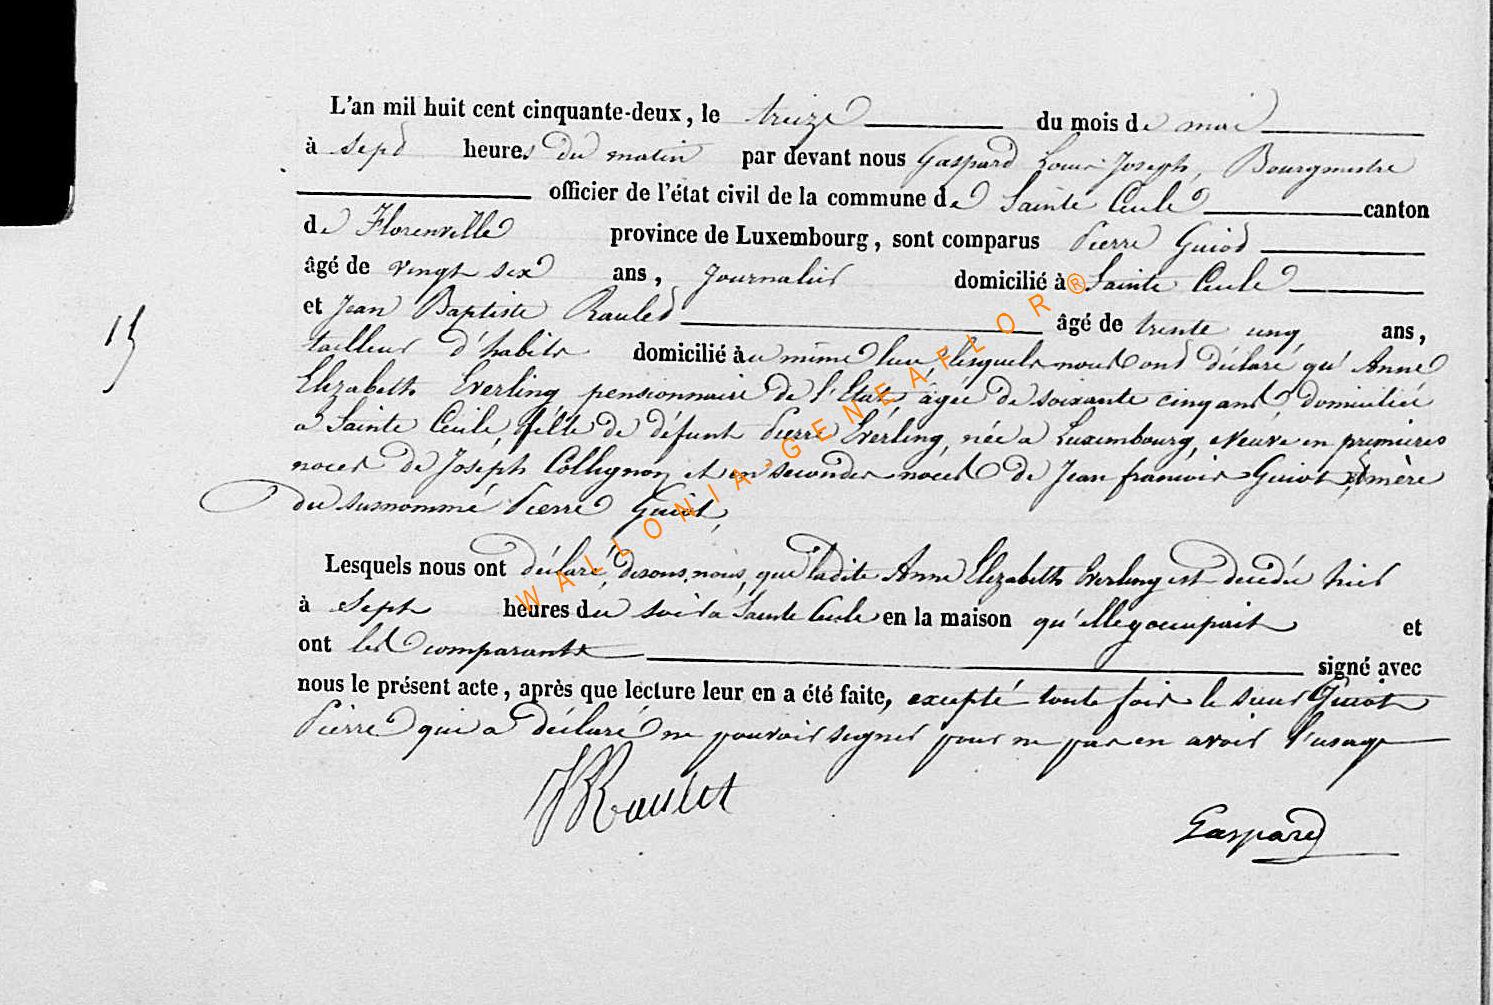 L'an mil huit cent cinquante-deux, le treize du mois de mai
à sept heures du matin par devant nous Gaspard Louis Joseph, Bourgmestre
officier de l'état civil de la commune de Sainte Cécile canton
de Florenville province de Luxembourg, sont comparus Pierre Guiot
âgé de vingt six ans, journalier domicilié à Sainte Cécile
et Jean Baptiste Raulet âgé de trente cinq ans,
15
tailleur d'habits domicilié au même lieu, lesquels nous ont déclaré qu'Anne
Elizabeth Everling, pensionnaire de l'Etat, âgée de soixante cinq ans, domiciliée
a Sainte Cécile, fille de défunt Pierre Everling, née a Luxembourg, veuve en premieres
noces de Joseph Collignon et en secondes noces de Jean francois Guiot, mère
du susnommé Pierre Guiot,
WALLONIA-GENEAFLOR®
Lesquels nous ont déclaré, disons, nous, que ladite Anne Elizabeth Everling est décédée hier
à Sept heures du soir a Sainte Cécile en la maison qu'elle y occupait et
ont les comparants signé avec
nous le présent acte, après que lecture leur en a été faite, excepté toute fois le sieur Guiot
Pierre qui a déclaré ne pouvoir signer pour ne pas en avoir l'usage
JBRaulet
Gaspard